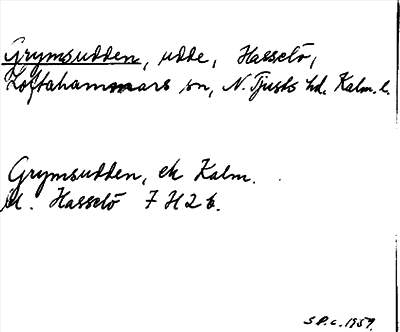 Grymsudden, udde, Hasselö,
Loftahammars sn, N. Tjusts hd. Kalm. l.
Grymsudden, ek Kalm.
bl. Hasselö 7H2b.
S P.c. 1959.